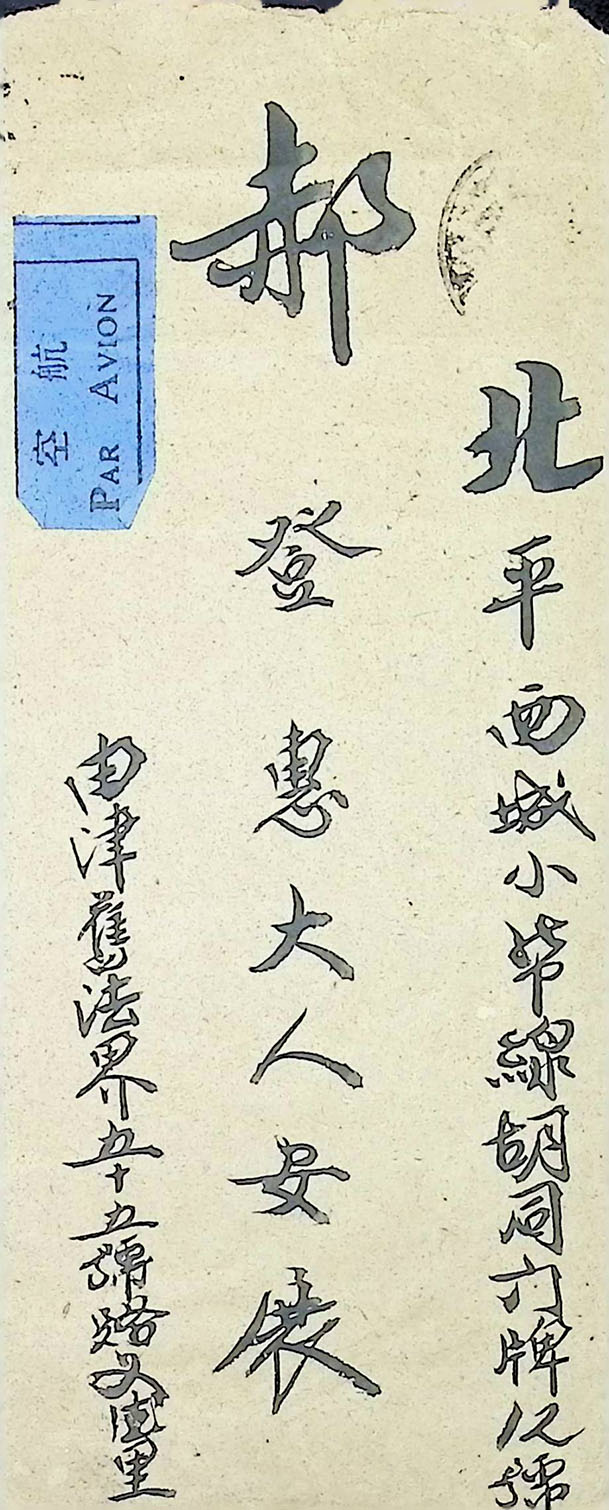 北平西城小線胡同门牌12號
郝登惠大人安展
由津舊法界五十五號路里
航空
PAR AVION